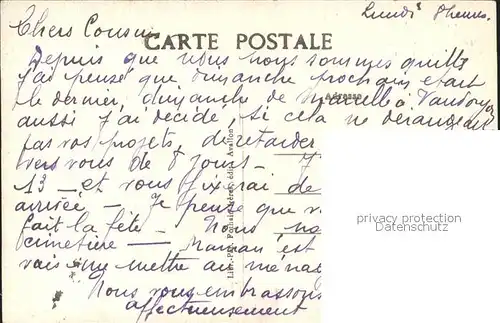 Lundi 8 heures.
Chers Cousins
CARTE POSTALE
Depuis que nous nous sommes quittés
j'ai pensé que dimanche prochain était
le dernier, dimanche de
Adresse
aussi j'ai décidé, si cela ne dérangeait
pas vos projets, de retarder
vers vous de 8 jours -
13 - et vous fixerai de
arrivée - Je pense que v
fait la fête - Nous no
cimetière - Maman est
vais me mettre au ménag
Nous vous embrassons
affectueusement
édit., Avallon
privacy protection
Datenschutz